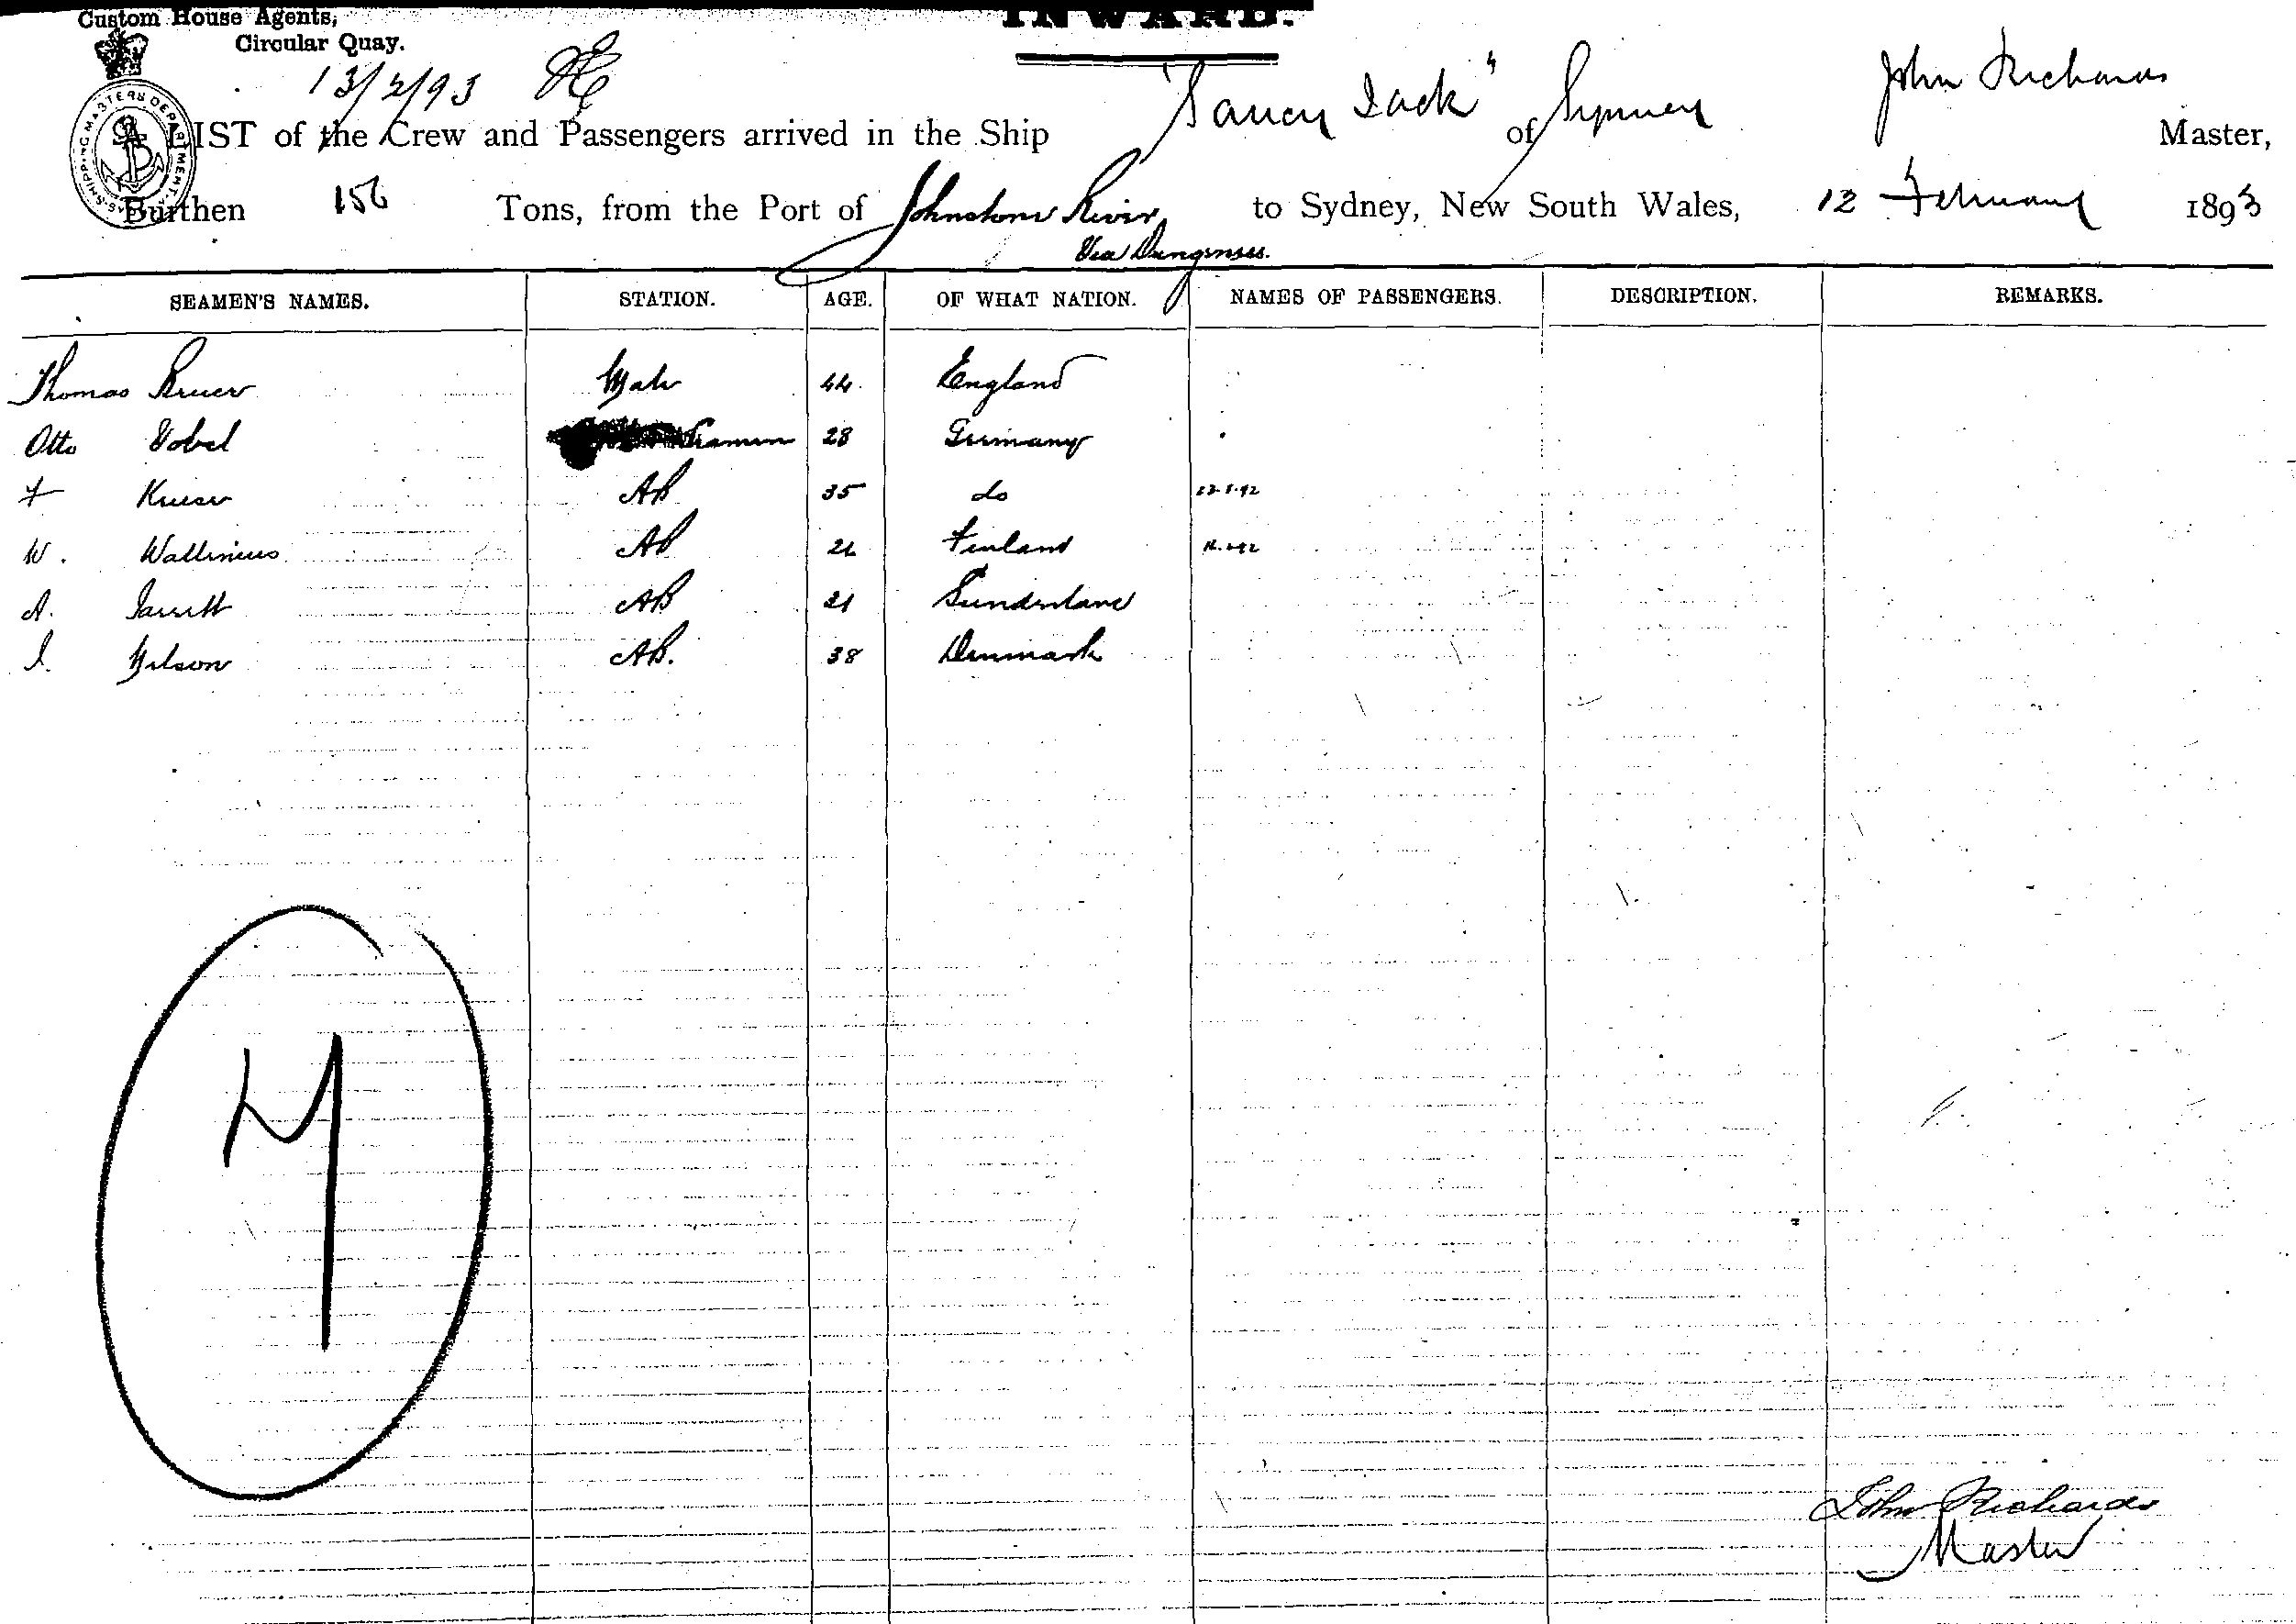 Custom House Agents,
Circular Quay.
INWARD.
13/2/93
SHIPPING MASTERS DEPARTMENT
LIST of the Crew and Passengers arrived in the Ship "Saucy Jack" of Sydney John Richards Master,
Burthen 156 Tons, from the Port of Johnstone River to Sydney, New South Wales, 12 February 1893
Via Dungeness.
SEAMEN'S NAMES. STATION. AGE. OF WHAT NATION. NAMES OF PASSENGERS. DESCRIPTION. REMARKS.
Thomas Mate 44 England
Otto Vobel Seaman 28 Germany
F AB 35 do
W. Wallenius AB Finland
A. Jarrett AB 21 Sunderland
AB. 38 Denmark
John Richards
Master